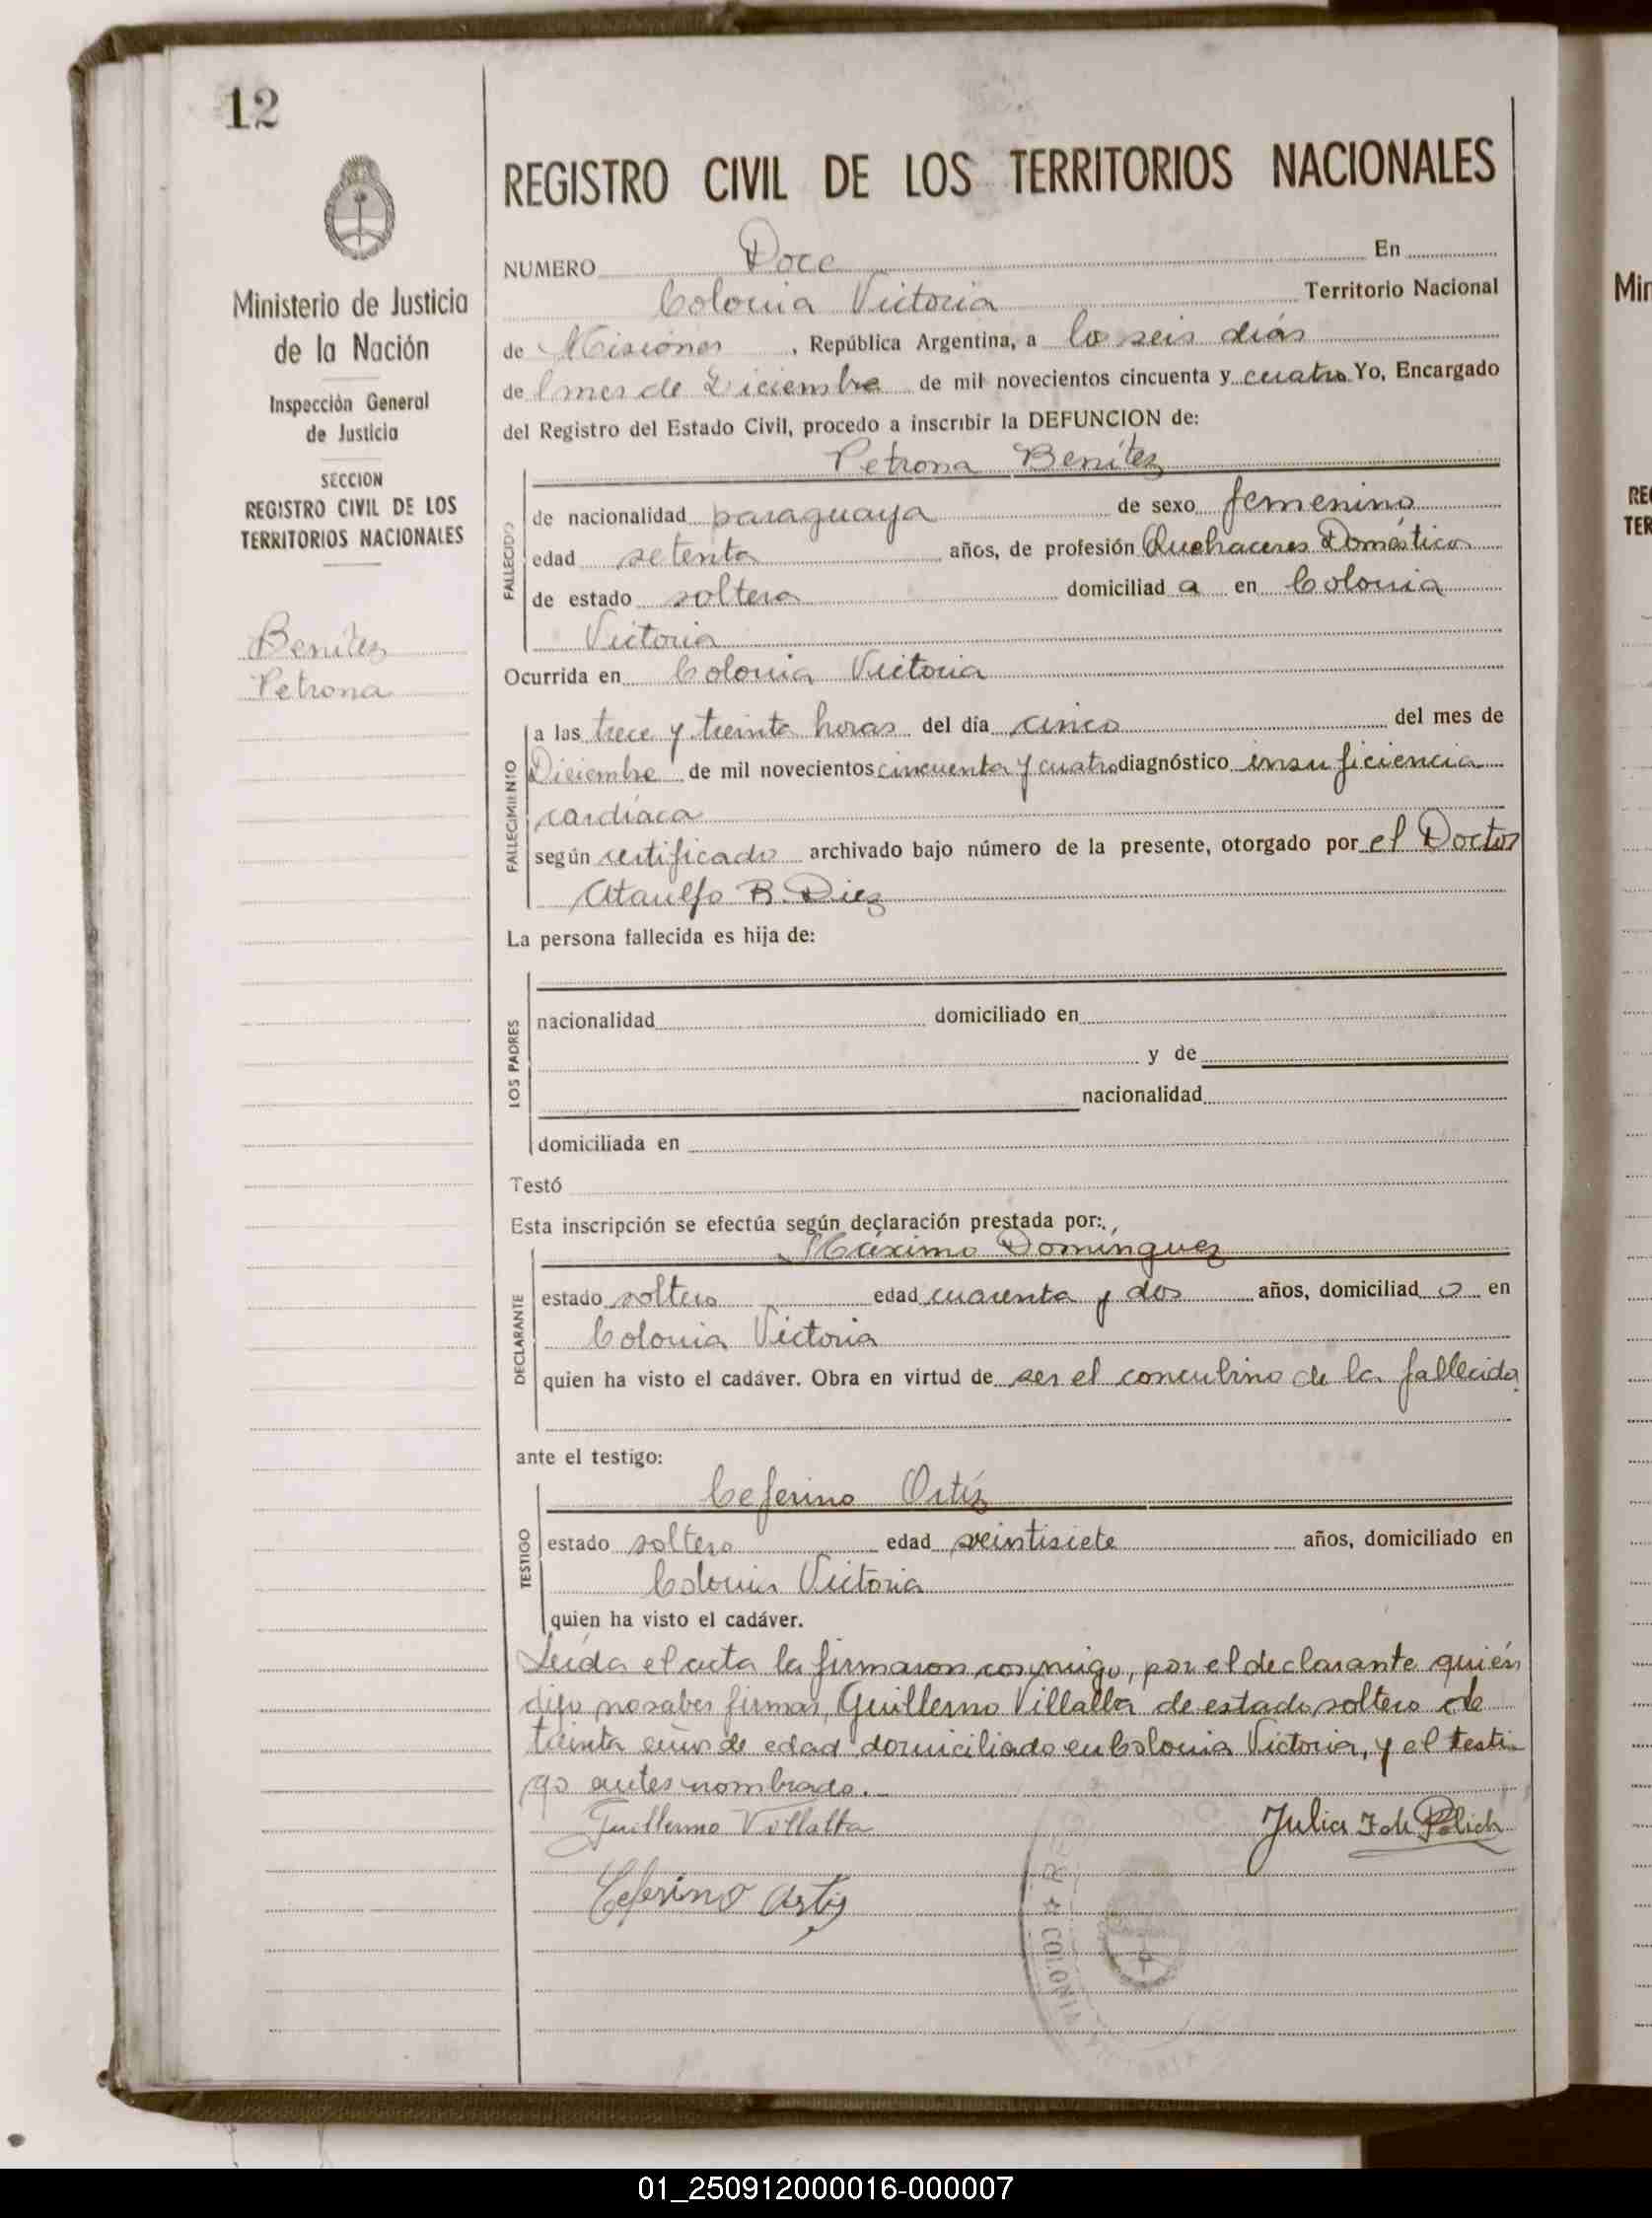 12
Ministerio de Justicia
de la Nación
Inspección General
de Justicia
SECCION
REGISTRO CIVIL DE LOS
TERRITORIOS NACIONALES
Benítez
Petrona
REGISTRO CIVIL DE LOS TERRITORIOS NACIONALES
NUMERO Doce En
Colonia Victoria Territorio Nacional
de Misiones, República Argentina, a los seis días
del mes de Diciembre de mil novecientos cincuenta y cuatro Yo, Encargado
del Registro del Estado Civil, procedo a inscribir la DEFUNCION de:
Petrona Benítez
FALLECIDO
de nacionalidad paraguaya de sexo femenino
edad setenta años, de profesión Quehaceres Domésticos
de estado soltera domiciliad a en Colonia
Victoria
Ocurrida en Colonia Victoria
FALLECIMIENTO
a las trece y treinta horas del día cinco del mes de
Diciembre de mil novecientos cincuenta y cuatro diagnóstico insuficiencia
cardíaca
según certificado archivado bajo número de la presente, otorgado por el Doctor
Ataulfo R. Diez
La persona fallecida es hija de:
LOS PADRES
nacionalidad domiciliado en
y de
nacionalidad
domiciliada en
Testó
Esta inscripción se efectúa según declaración prestada por:
Máximo Domínguez
DECLARANTE
estado soltero edad cuarenta y dos años, domiciliad o en
Colonia Victoria
quien ha visto el cadáver. Obra en virtud de ser el concubino de la fallecida
ante el testigo:
Ceferino Ortíz
TESTIGO
estado soltero edad veintisiete años, domiciliado en
Colonia Victoria
quien ha visto el cadáver.
Leída el acta la firmaron conmigo, por el declarante quién
dijo no saber firmar, Guillermo Villalba de estado soltero de
treinta años de edad domiciliado en Colonia Victoria, y el testi-
go antes nombrado.
Guillermo Villalba
Julia I de Polich
Ceferino Ortiz
COLONIA VICTORIA
Min
RE
TER
01_250912000016-000007